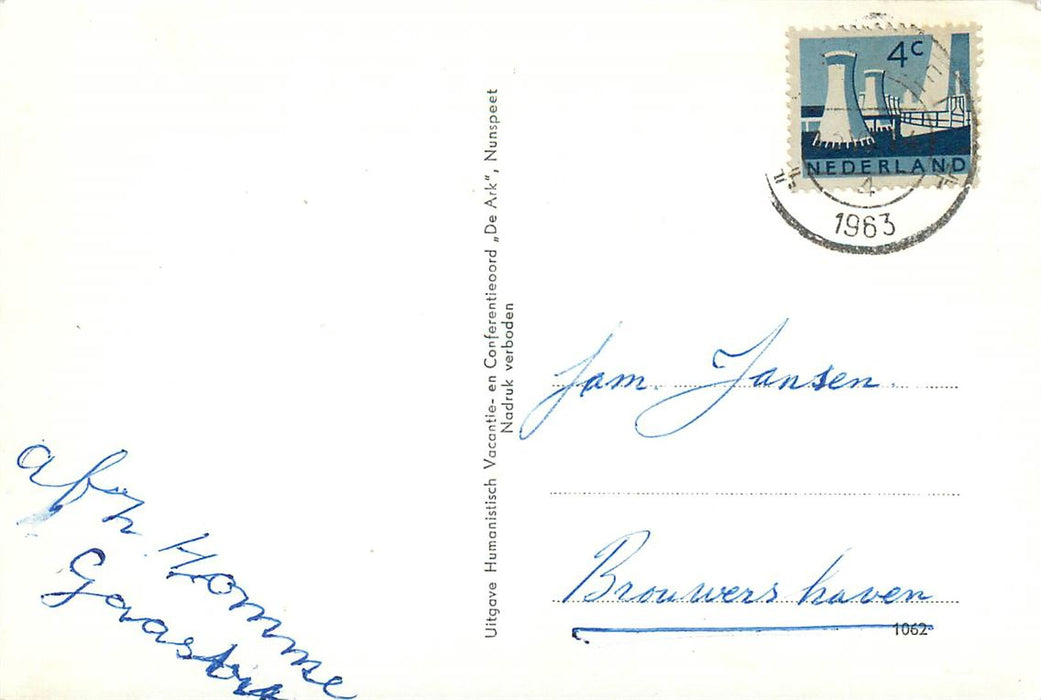 4c
NEDERLAND
4
1963
Uitgave Humanistisch Vacantie- en Conferentieoord „De Ark", Nunspeet
Nadruk verboden
Jansen
Brouwershaven
1062
afz. Homme
Gaastra